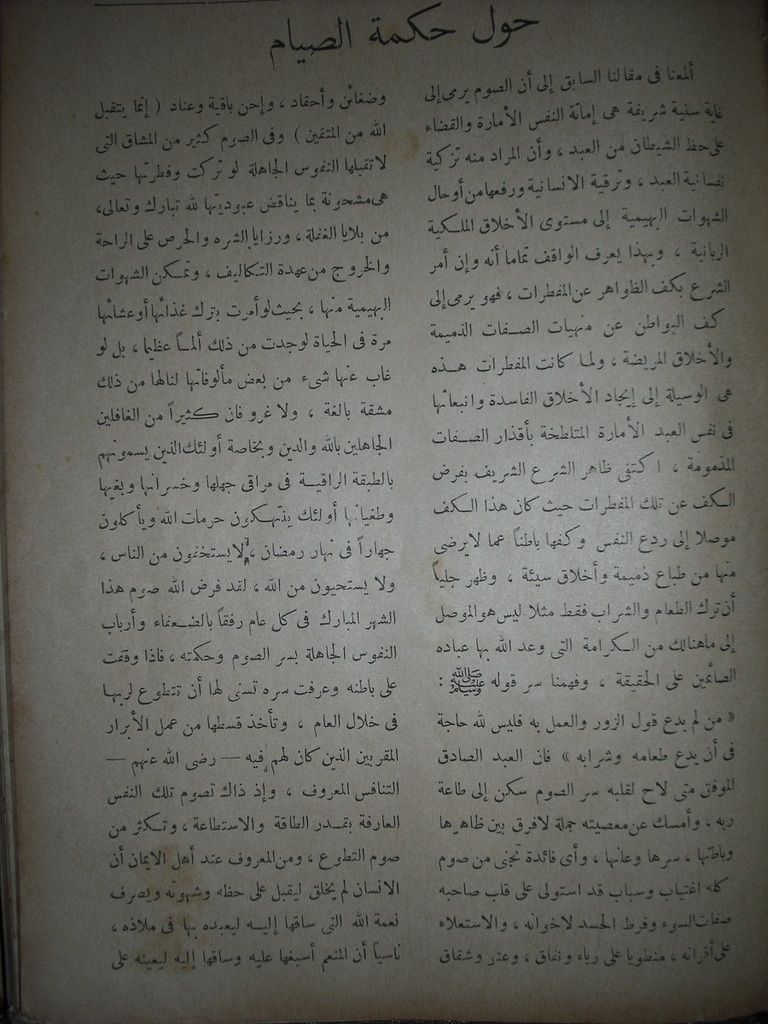 حول حكمة الصيام
ألمعنا فى مقالنا السابق إلى أن الصوم يرمى إلى
غاية سنية شريفة هى إماتة النفس الأمارة والقضاء
على حظ الشيطان من العبد ، وأن المراد منه تزكية
نفسانية العبد ، وترقية الانسانية ورفعها من أوحال
الشهوات البهيمية إلى مستوى الأخلاق الملكية
الربانية ، وبهذا يعرف الواقف تماما أنه وإن أمر
الشرع بكف الظواهر عن المفطرات ، فهو يرمى إلى
كف البواطن عن منهيات الصفات الذميمة
والأخلاق المريضة ، ولما كانت المفطرات هذه
هى الوسيلة إلى إيجاد الأخلاق الفاسدة وانبعاثها
فى نفس العبد الأمارة المتلطخة بأقذار الصفات
المذمومة ، اكتفى ظاهر الشرع الشريف بفرض
الكف عن تلك المفطرات حيث كان هذا الكف
موصلا إلى ردع النفس وكفها باطناً عما لا يرضى
منها من طباع ذميمة وأخلاق سيئة ، وظهر جلياً
أن ترك الطعام والشراب فقط مثلا ليس هو الموصل
إلى ما هنالك من الكرامة التى وعد الله بها عباده
الصائمين على الحقيقة ، وفهمنا سر قوله ﷺ :
« من لم يدع قول الزور والعمل به فليس لله حاجة
فى أن يدع طعامه وشرابه » فان العبد الصادق
الموفق متى لاح لقلبه سر الصوم سكن إلى طاعة
ربه ، وأمسك عن معصيته جملة لا فرق بين ظاهرها
وباطنها ، سرها وعلنها ، وأى فائدة تجنى من صوم
كله اغتياب وسباب قد استولى على قلب صاحبه
صفات السوء وفرط الحسد لاخوانه ، والاستعلاء
على أقرانه ، منطويا على رياء ونفاق ، وعتر وشقاق
وضغائن وأحقاد ، وإحن باقية وعناد ( إنما يتقبل
الله من المتقين ) وفى الصوم كثير من المشاق التى
لا تقبلها النفوس الجاهلة لو تركت وفطرتها حيث
هى مشحونة بما يناقض عبوديتها لله تبارك وتعالى،
من بلايا الغفلة ، ورزايا الشره والحرص على الراحة
والخروج من عهدة التكاليف ، وتمكن الشهوات
البهيمية منها ، بحيث لو أمرت بترك غذائها أو عشائها
مرة فى الحياة لوجدت من ذلك ألماً عظيما ، بل لو
غاب عنها شىء من بعض مألوفاتها لنالها من ذلك
مشقة بالغة ، ولا غرو فان كثيراً من الغافلين
الجاهلين بالله والدين وبخاصة أولئك الذين يسمونهم
بالطبقة الراقية فى مراقى جهلها وخسرانها وبغيها
وطغيانها أولئك ينتهكون حرمات الله ويأكلون
جهاراً فى نهار رمضان ، لا يستخفون من الناس ،
ولا يستحيون من الله ، لقد فرض الله صوم هذا
الشهر المبارك فى كل عام رفقاً بالضعفاء وأرباب
النفوس الجاهلة بسر الصوم وحكمته ، فاذا وقفت
على باطنه وعرفت سره تسنى لها أن تتطوع لربها
فى خلال العام ، وتأخذ قسطها من عمل الأبرار
المقربين الذين كان لهم فيه — رضى الله عنهم —
التنافس المعروف ، وإذ ذاك تصوم تلك النفس
العارفة بقدر الطاقة والاستطاعة ، وتكثر من
صوم التطوع ، ومن المعروف عند أهل الايمان أن
الانسان لم يخلق ليقبل على حظه وشهوته ويصرف
نعمة الله التى ساقها إليه ليعبده بها فى ملاذه ،
ناسياً أن المنعم أسبغها عليه وساقها إليه ليعينه على